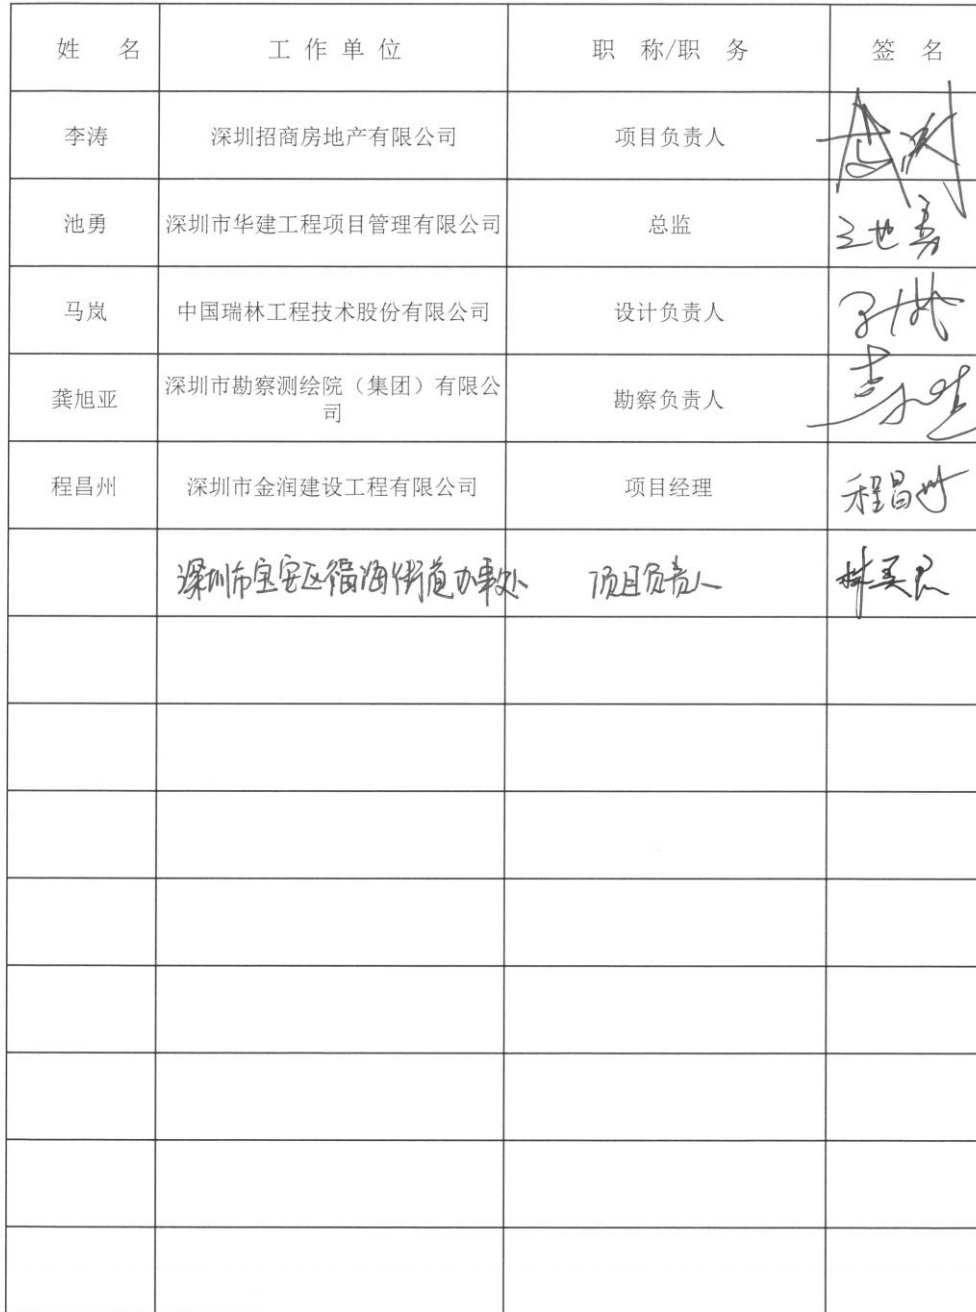 姓 名 工作单位 职 称/职 务 签 名
李涛 深圳招商房地产有限公司 项目负责人
池勇 深圳市华建工程项目管理有限公司 总监 池勇
马岚 中国瑞林工程技术股份有限公司 设计负责人
龚旭亚 深圳市勘察测绘院（集团）有限公 勘察负责人
司
程昌州 深圳市金润建设工程有限公司 项目经理 程昌州
深圳市宝安区福海街道办事处 项目负责人